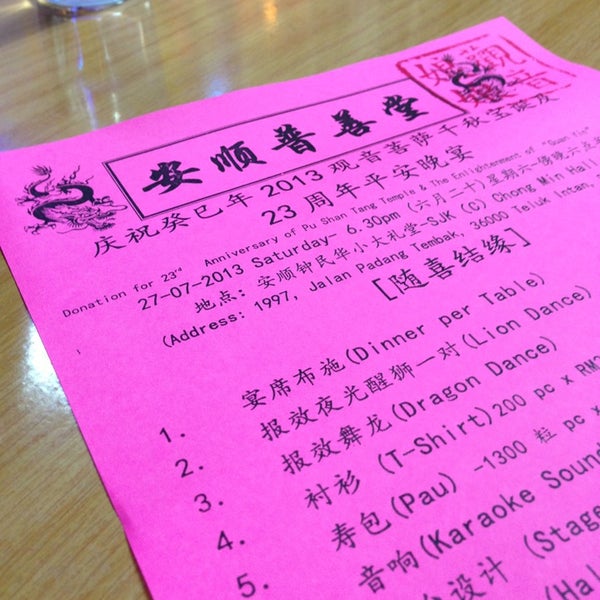 安顺普善堂
观音
庆祝癸巳年 2013 观音菩萨千秋宝诞及
23 周年平安晚宴
Donation for 23rd Anniversary of Pu Shan Tang Temple & The Enlightenment of "Guan Yin"
27-07-2013 Saturday- 6.30pm (六月二十) 星期六傍晚六点半
地点: 安顺钟民华小大礼堂-SJK (C) Chong Min Hall
(Address: 1997, Jalan Padang Tembak, 36000 Teluk Intan,
[随喜结缘]
1. 宴席布施(Dinner per Table)
2. 报效夜光醒狮一对(Lion Dance)
3. 报效舞龙(Dragon Dance)
4. 衬衫 (T-Shirt) 200 pc x RM
5. 寿包(Pau) -1300 粒 pc x
音响(Karaoke Sound
设计 (Stage
(Hal